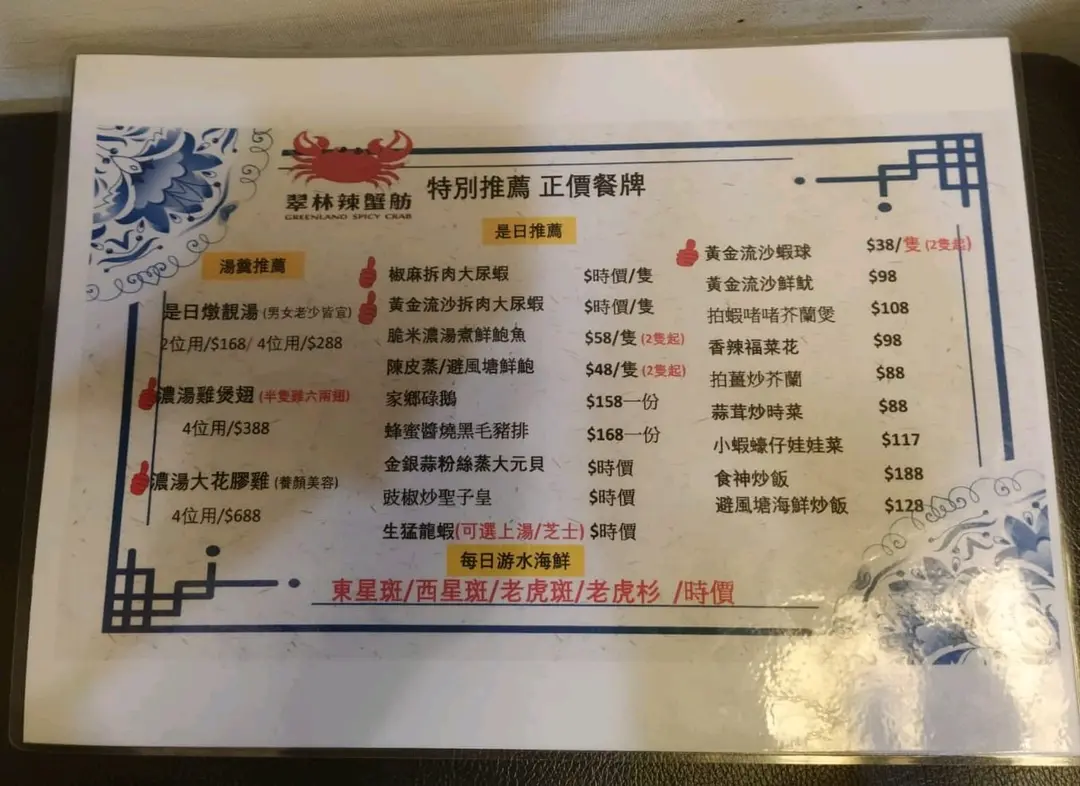 翠林辣蟹舫
GREENLAND SPICY CRAB
特別推薦 正價餐牌
湯羹推薦
是日燉靚湯 (男女老少皆宜)
2位用/$168/ 4位用/$288
濃湯雞煲翅 (半隻雞六兩翅)
4位用/$388
濃湯大花膠雞 (養顏美容)
4位用/$688
是日推薦
椒麻拆肉大尿蝦 $時價/隻
黃金流沙拆肉大尿蝦 $時價/隻
脆米濃湯煮鮮鮑魚 $58/隻 (2隻起)
陳皮蒸/避風塘鮮鮑 $48/隻 (2隻起)
家鄉碌鵝 $158一份
蜂蜜醬燒黑毛豬排 $168一份
金銀蒜粉絲蒸大元貝 $時價
豉椒炒聖子皇 $時價
生猛龍蝦(可選上湯/芝士) $時價
黃金流沙蝦球 $38/隻 (2隻起)
黃金流沙鮮魷 $98
拍蝦啫啫芥蘭煲 $108
香辣福菜花 $98
拍薑炒芥蘭 $88
蒜茸炒時菜 $88
小蝦蠔仔娃娃菜 $117
食神炒飯 $188
避風塘海鮮炒飯 $128
每日游水海鮮
東星斑/西星斑/老虎斑/老虎杉 /時價